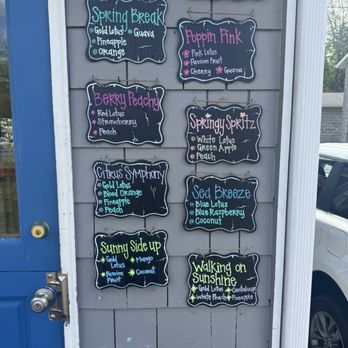 Spring Break
Gold Lotus
Guava
Pineapple
Orange
Poppin Pink
Pink Lotus
Passion Fruit
Cherry
Guava
Berry Peachy
Red Lotus
Strawberry
Peach
Springy Spritz
White Lotus
Green Apple
Peach
Citrus Symphony
Gold Lotus
Blood Orange
Pineapple
Peach
Sea Breeze
Blue Lotus
Blue Raspberry
Coconut
Sunny Side up
Gold Lotus
Mango
Passion Fruit
Coconut
Walking on
Sunshine
Gold Lotus
Cantaloupe
White Peach
Pineapple